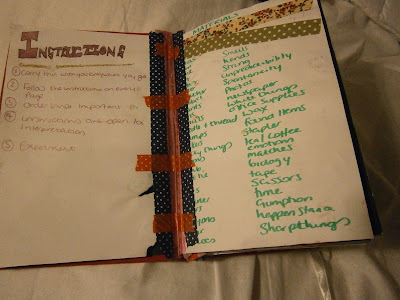 INSTRUCTIONS
① Carry this with you everywhere you go
② Follow the instructions on every
Page
③ Order is not important
④ Instructions are open to
Interpretation
⑤ Experiment
MATERIALS
Smells
Hands
String
Unpredictibility
Spontaneity
Photos
newspaper
White things
office supplies
thread Wax
found items
Stapler
Tea/coffee
things emotions
matches
biology
tape
Scissors
time
Gumption
happenstance
Sharp things